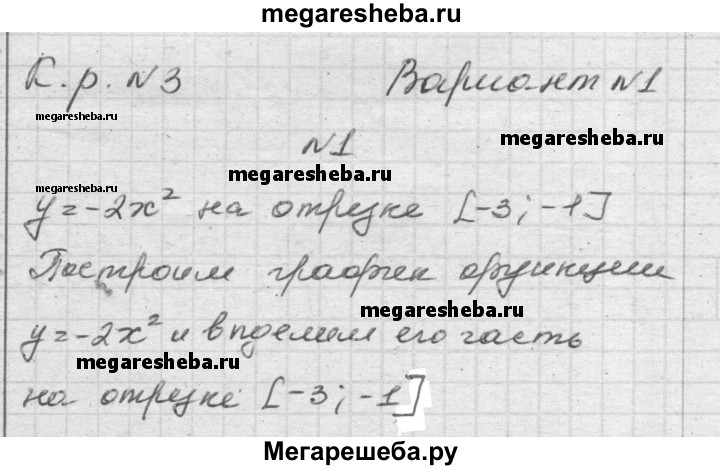 megaresheba.ru
К.р. №3 Вариант №1
megaresheba.ru
megaresheba.ru
№1
megaresheba.ru
y=-2x² на отрезке [-3; -1]
Построим график функции
megaresheba.ru
y=-2x² и выделим его часть
megaresheba.ru
на отрезке [-3; -1]
Мегарешеба.ру